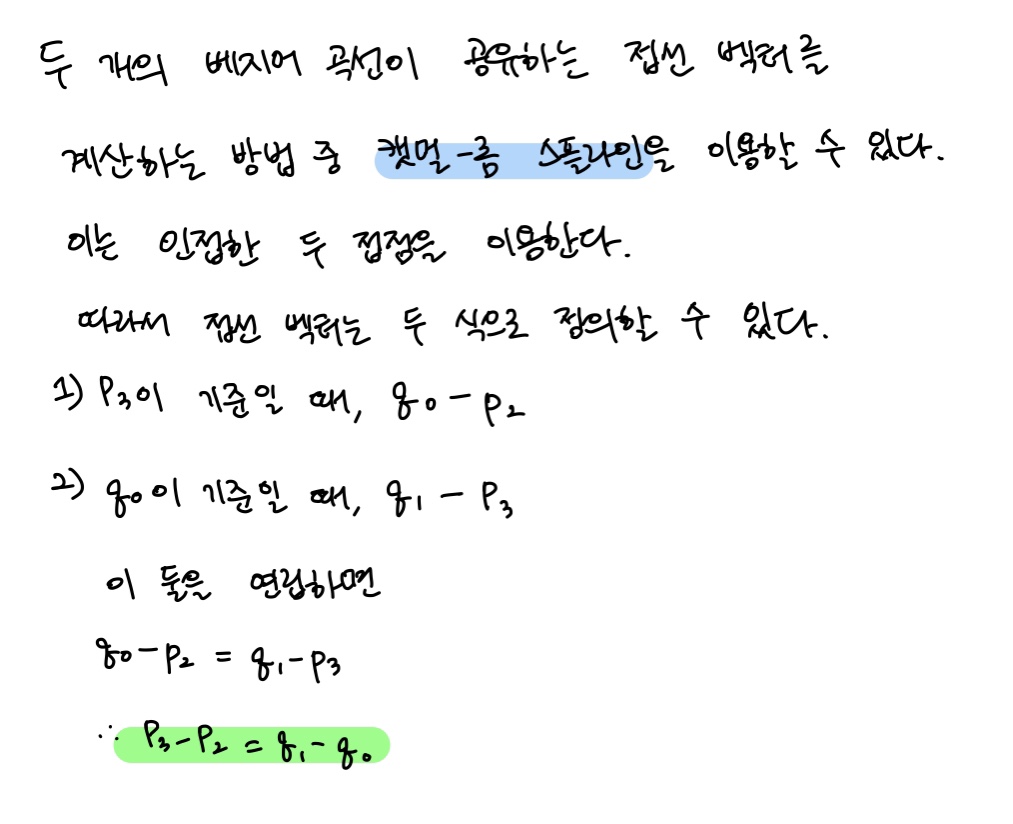 두 개의 베지어 곡선이 공유하는 접선 벡터를
계산하는 방법 중 캣멀-롬 스플라인을 이용할 수 있다.
이는 인접한 두 접점을 이용한다.
따라서 접선 벡터는 두 식으로 정의할 수 있다.
1) P₃이 기준일 때, q₀ - P₂
2) q₀이 기준일 때, q₁ - P₃
이 둘을 연립하면
q₀ - P₂ = q₁ - P₃
∴ P₃ - P₂ = q₁ - q₀